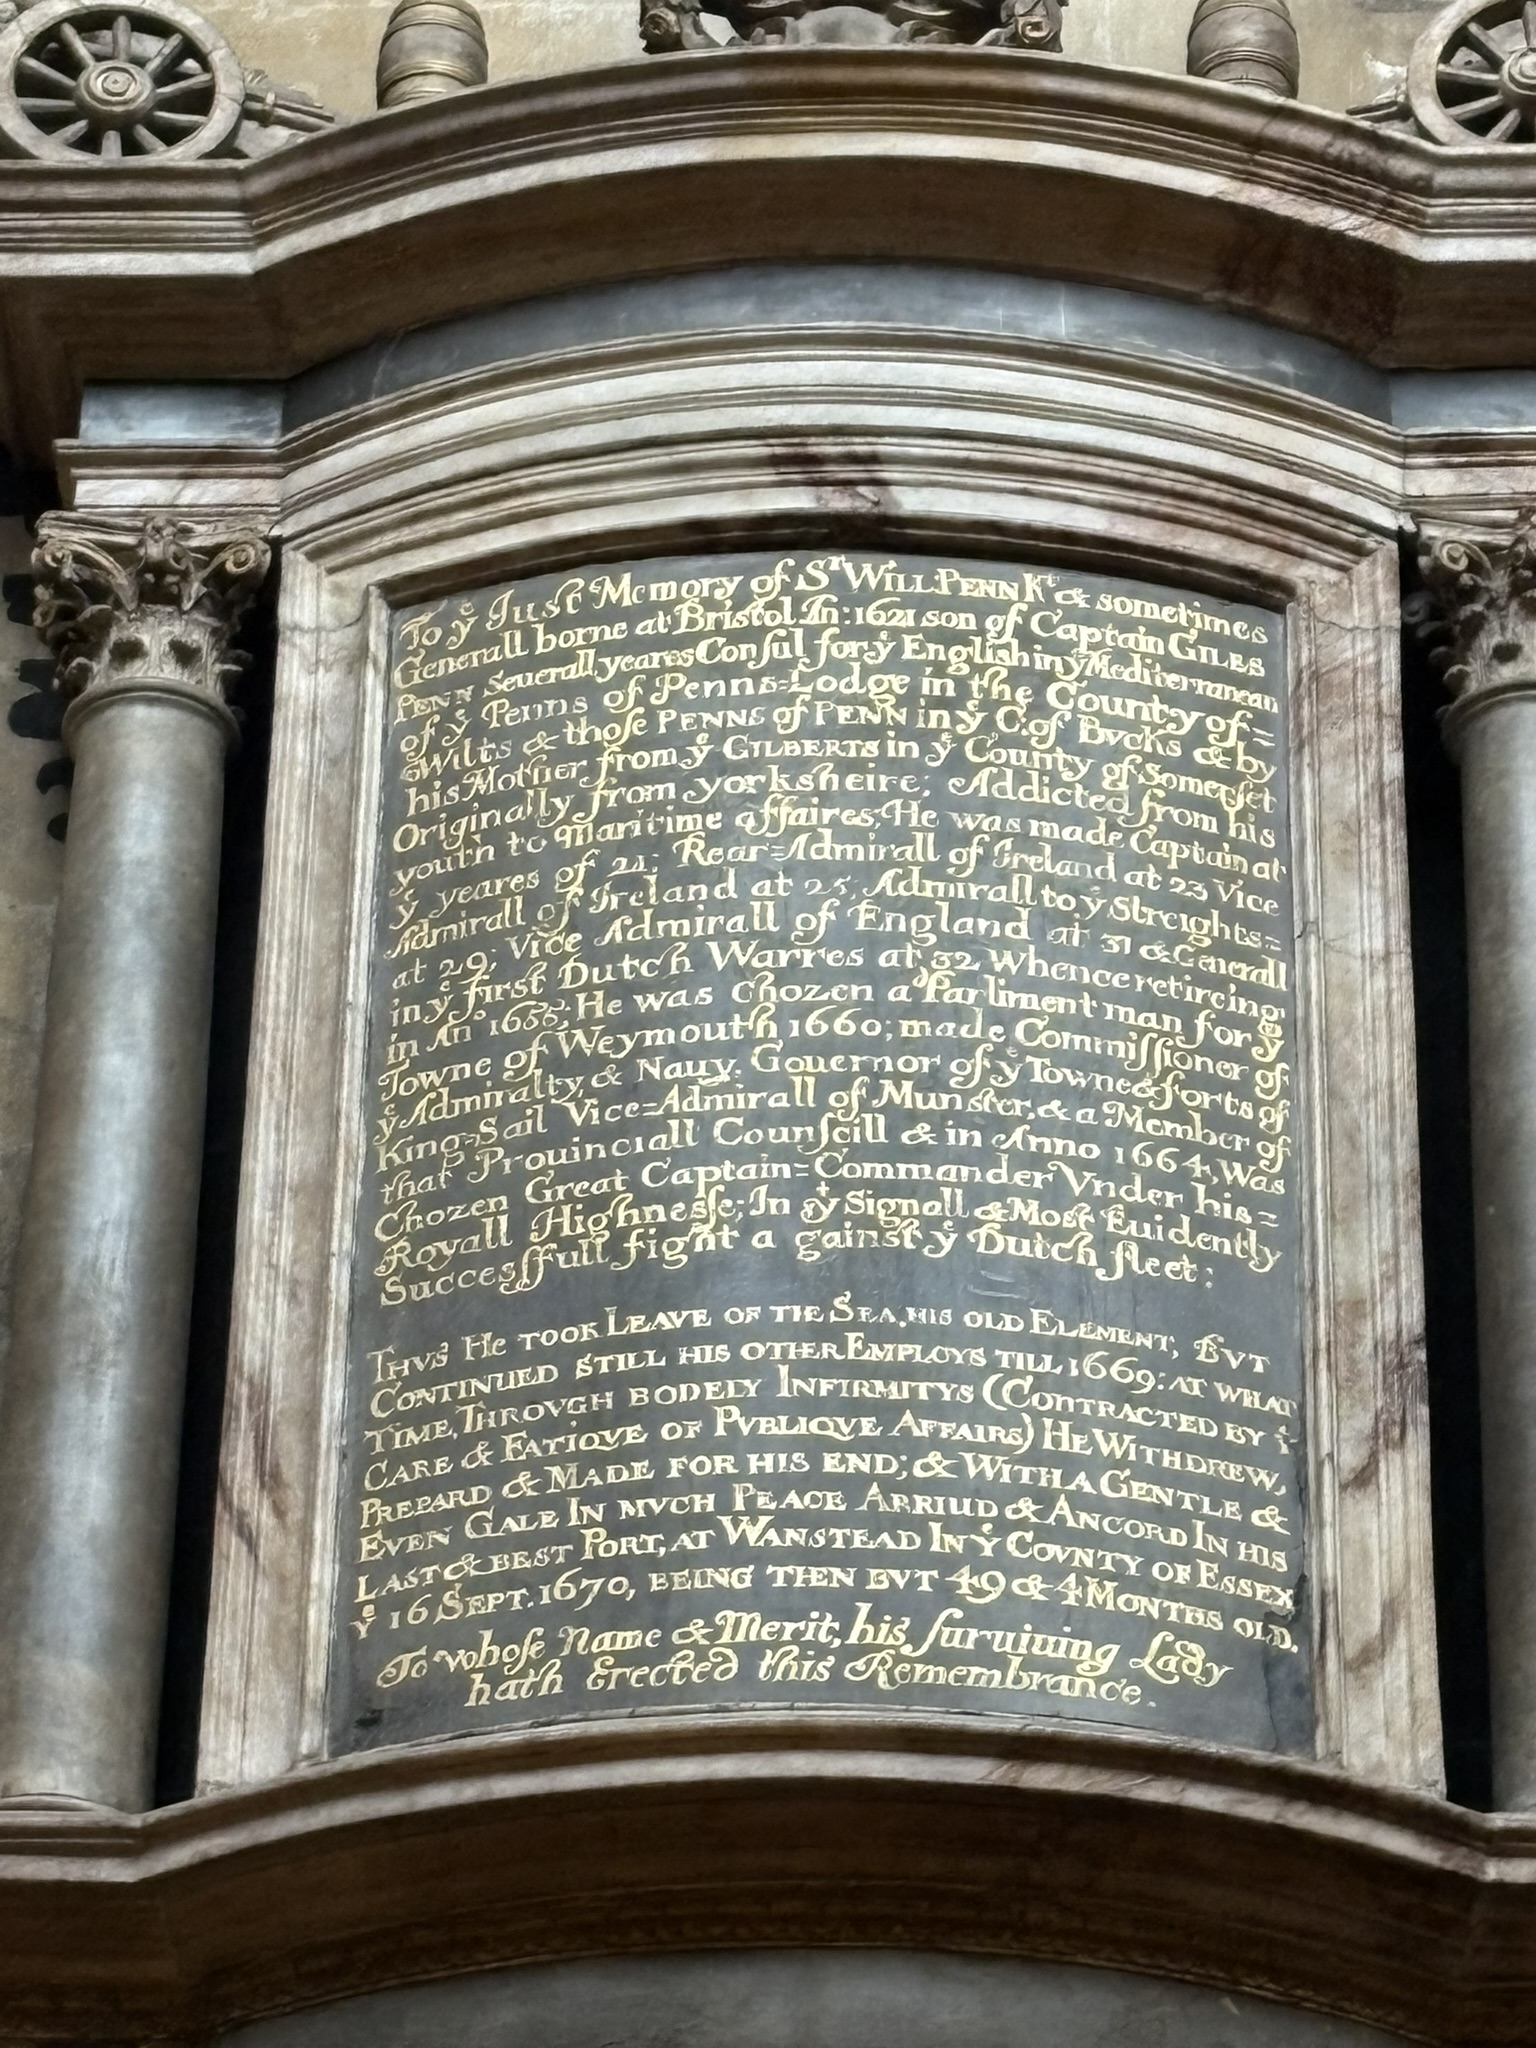 To yͤ Just Memory of Sʳ WILL: PENN Kᵗ & sometimes
Generall borne at Bristol In: 1621 son of Captain GILES
PENN Seuerall yeares Consul for yͤ English in yͤ Mediterranean
of yͤ Penns of Penns=Lodge in the County of=
Wilts & those PENNS of PENN in yͤ C. of BVCKS & by
his Mother from yͤ GILBERTS in yͤ County of Somerset
Originally from yorksheire; Addicted from his
youth to Maritime affaires; He was made Captain at
yͤ yeares of 21; Rear=Admirall of Ireland at 23 Vice
Admirall of Ireland at 25; Admirall to yͤ Streights=
at 29; Vice Admirall of England at 31 & Generall
in yͤ first Dutch Warres at 32 Whence retireing
in Anᵒ 1655; He was Chozen a Parliment man for yͤ
Towne of Weymouth 1660; made Commissioner of
yͤ Admiralty, & Nauy. Gouernor of yͤ Towne & forts of
King=Sail Vice=Admirall of Munster, & a Member of
that Prouinciall Counseill & in Anno 1664, Was
Chozen Great Captain=Commander Vnder his=
Royall Highnesse; In yᵗ Signall & Most Euidently
Successfull fight a gainst yͤ Dutch fleet:
THVS HE TOOK LEAVE OF THE SEA, HIS OLD ELEMENT, BVT
CONTINUED STILL HIS OTHER EMPLOYS TILL 1669: AT WHAT
TIME, THROVGH BODELY INFIRMITYS (CONTRACTED BY yͤ
CARE & FATIQVE OF PVBLIQVE AFFAIRS) HE WITHDREW,
PREPARD & MADE FOR HIS END; & WITH A GENTLE &
EVEN GALE IN MVCH PEACE ARRIUD & ANCORD IN HIS
LAST & BEST PORT, AT WANSTEAD IN yͤ COVNTY OF ESSEX
yͤ 16 SEPT. 1670, BEING THEN BVT 49 & 4 MONTHS OLD.
To whose Name & Merit, his suruiuing Lady
hath Erected this Remembrance.